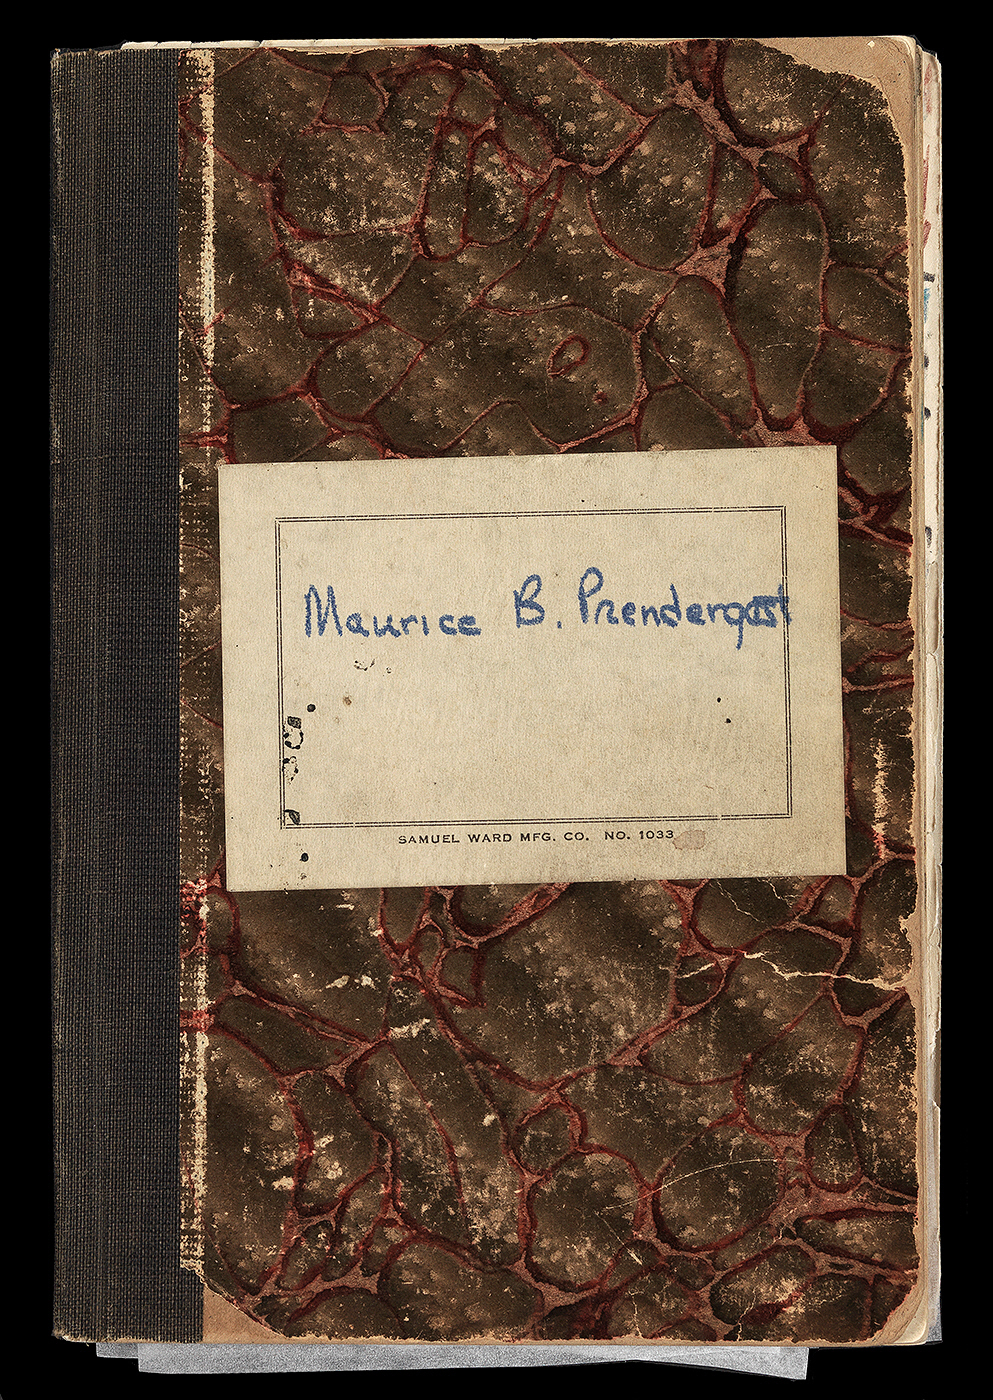 Maurice B. Prendergast
SAMUEL WARD MFG. CO. NO. 1033